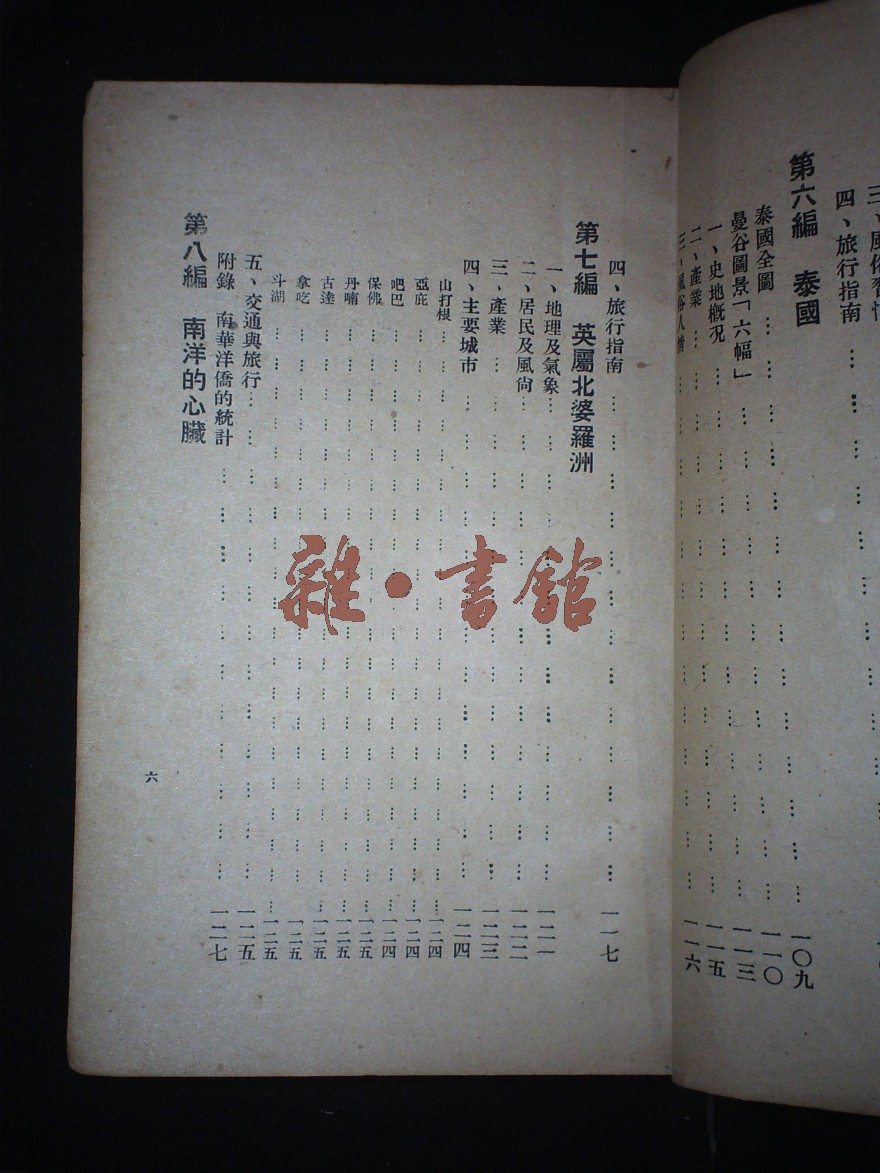 三、風俗習
四、旅行指南
第六編 泰國
泰國全圖 一〇九
曼谷圖景「六幅」 一一〇
一、史地概况 一一三
二、產業 一一五
三、風俗人情 一一六
四、旅行指南 一一七
第七編 英屬北婆羅洲
一、地理及氣象 一二一
二、居民及風尙 一二二
三、產業 一二三
四、主要城市 一二四
山打根 一二四
亞庇 一二四
吧巴 一二四
保佛 一二五
丹喃 一二五
古達 一二五
拿吃 一二五
斗湖 一二五
五、交通與旅行 一二五
附錄 南華洋僑的統計 一二七
第八編 南洋的心臟
六
雜·書館